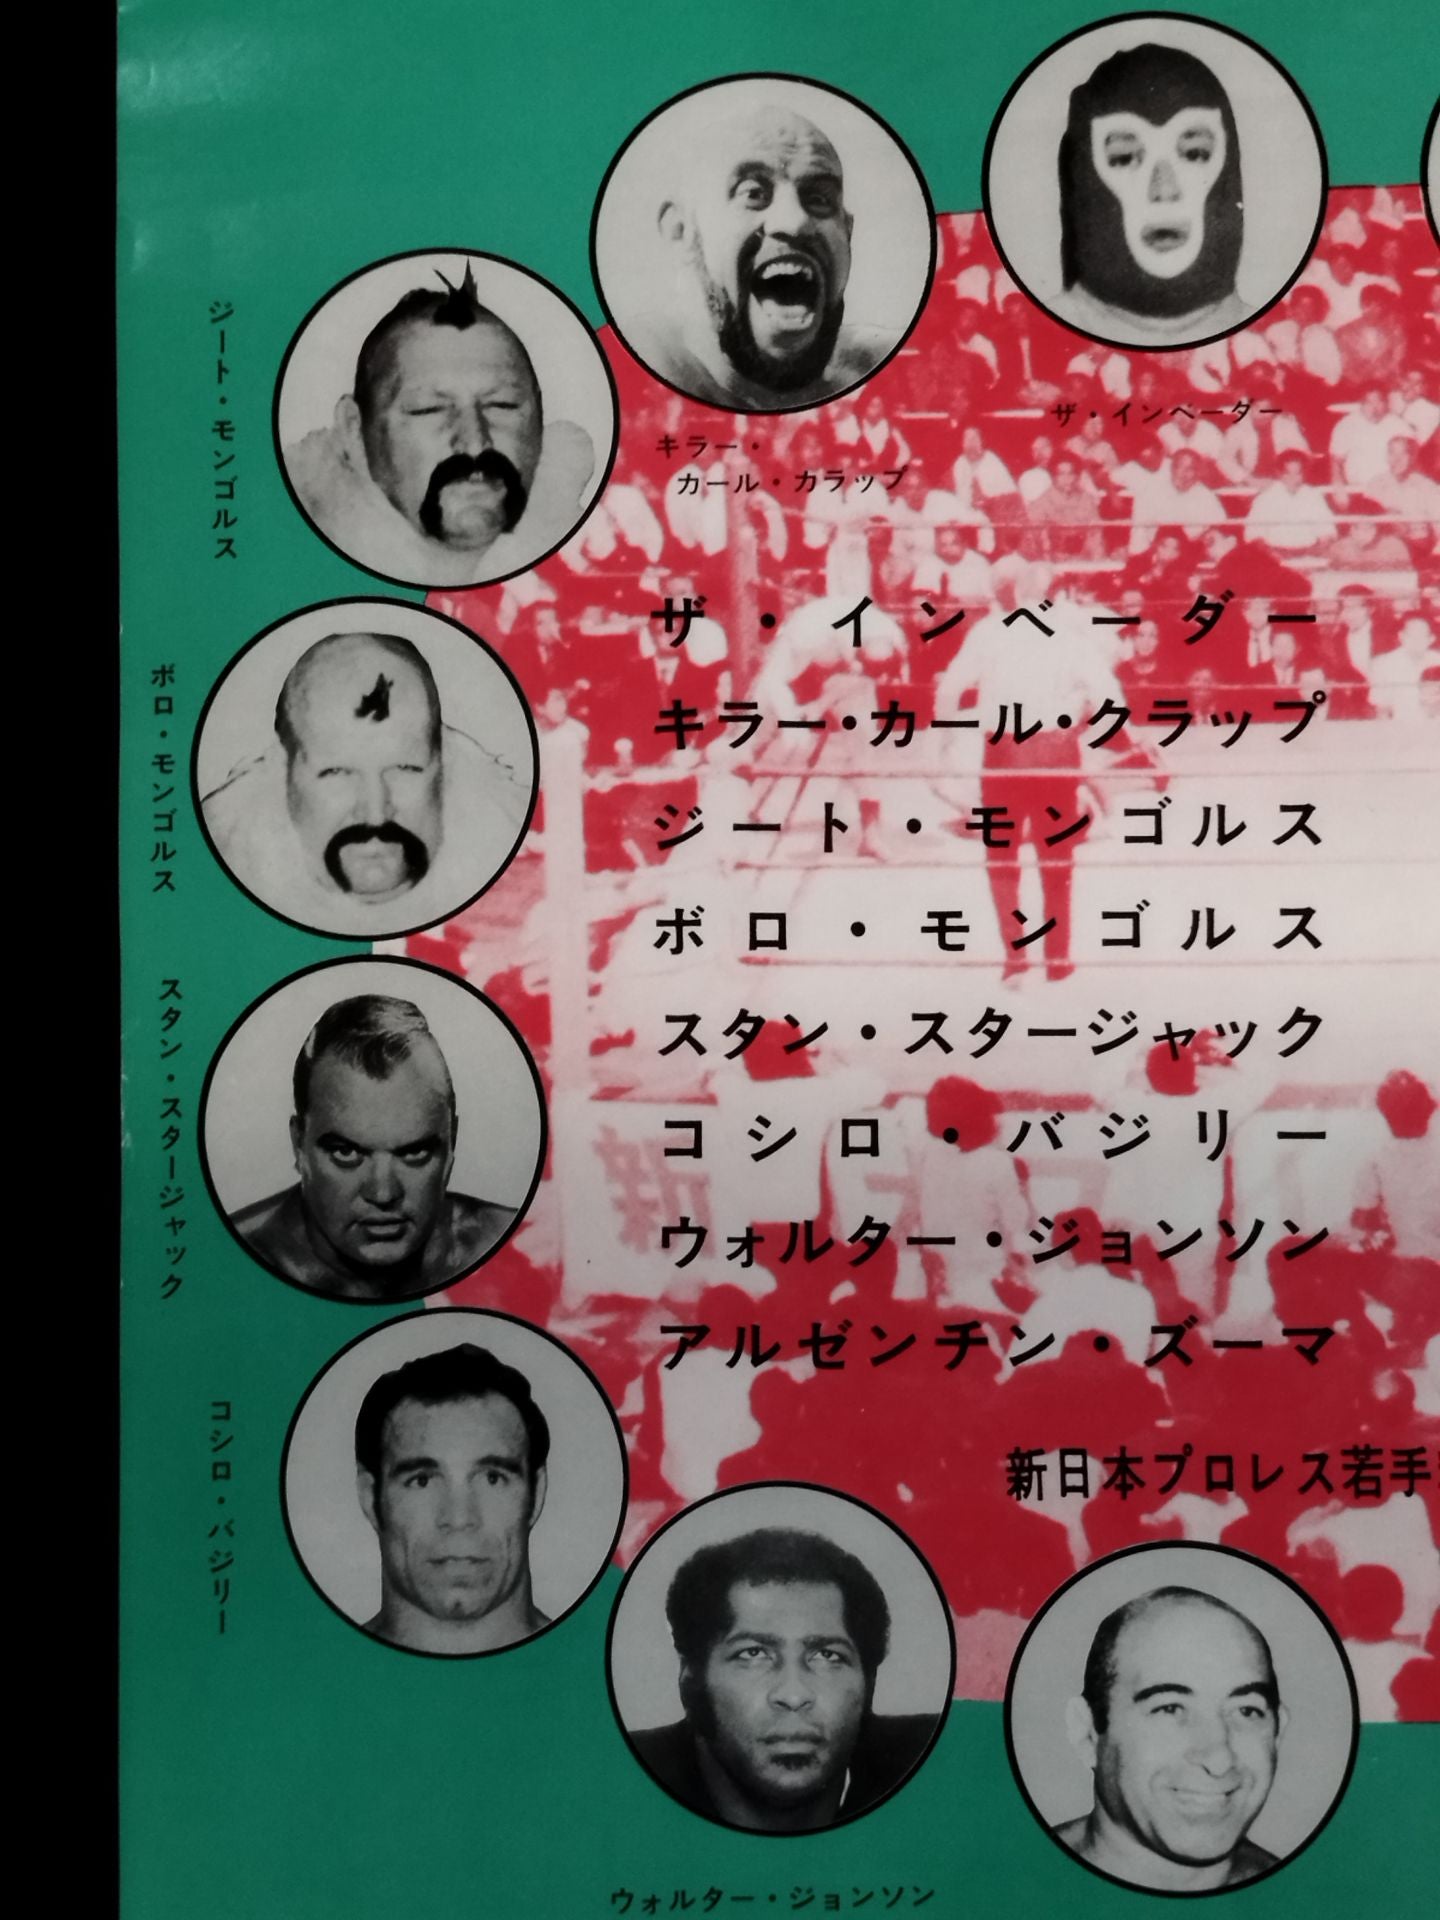 ザ・インベーダー
キラー・
カール・カラップ
ジート・モンゴルス
ボロ・モンゴルス
スタン・スタージャック
コシロ・バジリー
ザ・インベーダー
キラー・カール・クラップ
ジート・モンゴルス
ボロ・モンゴルス
スタン・スタージャック
コシロ・バジリー
ウォルター・ジョンソン
アルゼンチン・ズーマ
新日本プロレス若手
ウォルター・ジョンソン